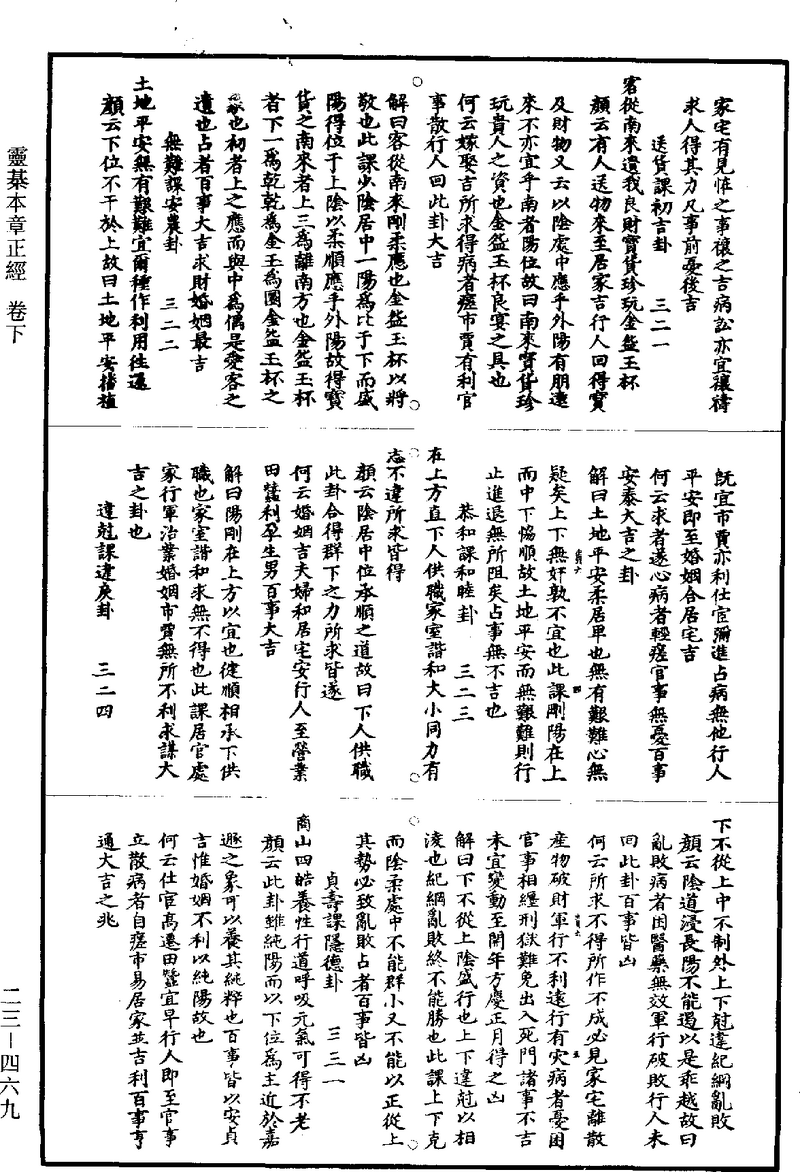 靈棊本章正經 卷下
二三—四六九
家宅有見怪之事禳之吉病訟亦宜禳禱
求人得其力凡事前憂後吉
送貨課初吉卦 三二一
客從南來遺我良財寶貨珍玩金盌玉杯
顏云有人送物來至居家吉行人回得寶
及財物又云以陰處中應乎外陽有朋遠
來不亦宜乎南者陽位故曰南來寶貨珍
玩貴人之資也金盌玉杯良宴之具也
何云嫁娶吉所求得病者痊市賈有利官
事散行人回此卦大吉
解曰客從南來剛柔應也金盌玉杯以將
敬也此課少陰居中一陽為比于下而盛
陽得位于上陰以柔順應乎外陽故得寶
貨之南來者上三為離南方也金盌玉杯
者下一為乾乾為金玉為圜金盌玉杯之
象也初者上之應而與中為偶是愛客之
遺也占者百事大吉求財婚姻最吉
無難課安農卦 三二二
土地平安無有艱難宜爾種作利用往還
顏云下位不干於上故曰土地平安播植
既宜市賈亦利仕宦彌進占病無他行人
平安即至婚姻合居宅吉
何云求者遂心病者輕痊官事無憂百事
安泰大吉之卦
解曰土地平安柔居單也無有艱難心無
疑矣上下無奸孰不宜也此課剛陽在上
而中下恊順故土地平安而無艱難則行
止進退無所阻矣占事無不吉也
恭和課和睦卦 三二三
在上方直下人供職家室諧和大小同力有
志不違所求皆得
顏云陰居中位承順之道故曰下人供職
此卦合得群下之力所求皆遂
何云婚姻吉夫婦和居宅安行人至營業
田蠶利孕生男百事大吉
解曰陽剛在上方以宜也從順相承下供
職也家室諧和求無不得也此課居官處
家行軍治業婚姻市賈無所不利求謀大
吉之卦也
違尅課違戾卦 三二四
下不從上中不制外上下尅違紀綱亂敗
顏云陰道浸長陽不能遏以是乖越故曰
亂敗病者困醫藥無效軍行破敗行人未
回此卦百事皆凶
何云所求不得所作不成必見家宅離散
產物破財軍行不利遠行有灾病者憂困
官事相纏刑獄難免出入死門諸事不吉
未宜變動至開年方慶正月得之凶
解曰下不從上陰盛行也上下違尅以相
淩也紀綱亂敗終不能勝也此課上下克
而陰柔處中不能群小又不能以正從上
其勢必致亂敗占者百事皆凶
貞壽課隱德卦 三三一
商山四皓養性行道呼吸元氣可得不老
顏云此卦雖純陽而以下位為主近於嘉
遯之象可以養其純粹也百事皆以安貞
吉惟婚姻不利以純陽故也
何云仕宦高遷田蠶宜早行人即至官事
立散病者自痊市易居家並吉利百事亨
通大吉之兆